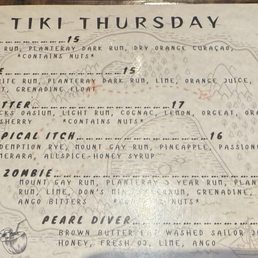 TIKI THURSDAY
15
RUM, PLANTERAY DARK RUM, DRY ORANGE CURAÇAO,
*CONTAINS NUTS*
15
RUM, PLANTERAY DARK RUM, LIME, ORANGE JUICE,
GRENADINE FLOAT
17
OASIUM, LIGHT RUM, COGNAC, LEMON, ORGEAT,
SHERRY *CONTAINS NUTS*
ITCH 16
RUM, MOUNT GAY RUM, PINEAPPLE, PASSION
ALLSPICE-HONEY SYRUP
ZOMBIE
MOUNT GAY RUM, PLANTERAY 5 YEAR RUM,
RUM, LIME, DON'S GRENADINE,
ANGO BITTERS *CONTAINS NUTS*
PEARL DIVER
BROWN BUTTER WASHED SAILOR
HONEY, FRESH OJ, LIME, ANGO